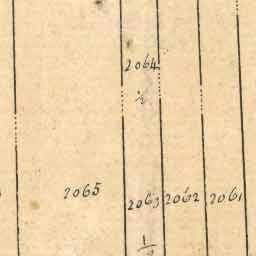 2064
1/2
2065 2063 2062 2061
1/2